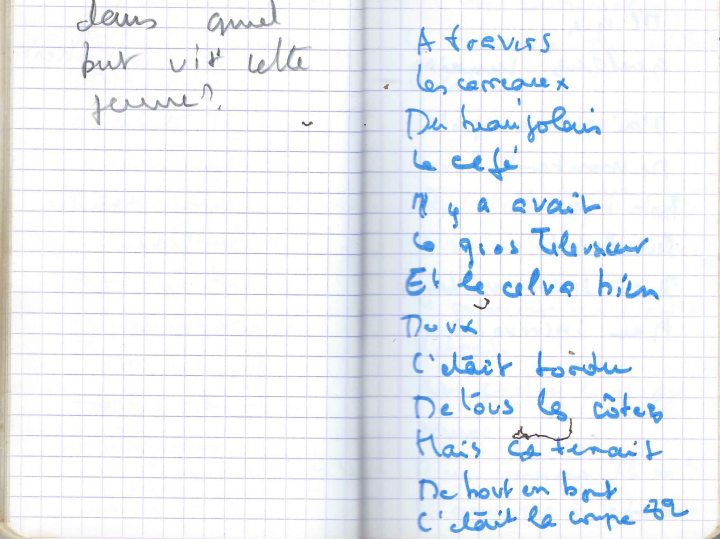 dans quel
but vit cette
jeune?
A travers
les carreaux
Du beaujolais
le café
Il y a avait
le gros Televiseur
Et le calva bien
Doux
C'était tordu
De tous les côtés
Mais ça tenait
De bout en bout
C'était la coupe 82